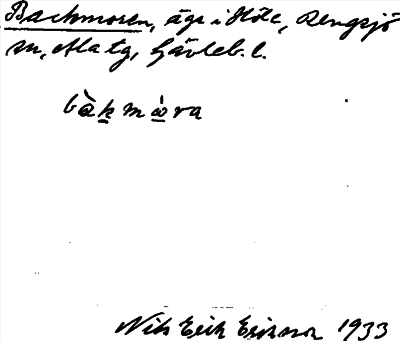 Backmoren, äga i Höle, Rengsjö
sn, Ala tg, Gävleb. l.
bàkmòra
Nils Erik Eriksson 1933